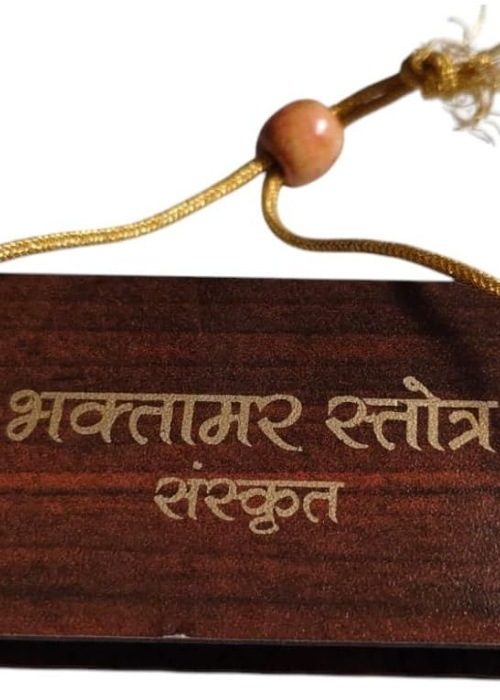 भक्तामर स्तोत्र
संस्कृत